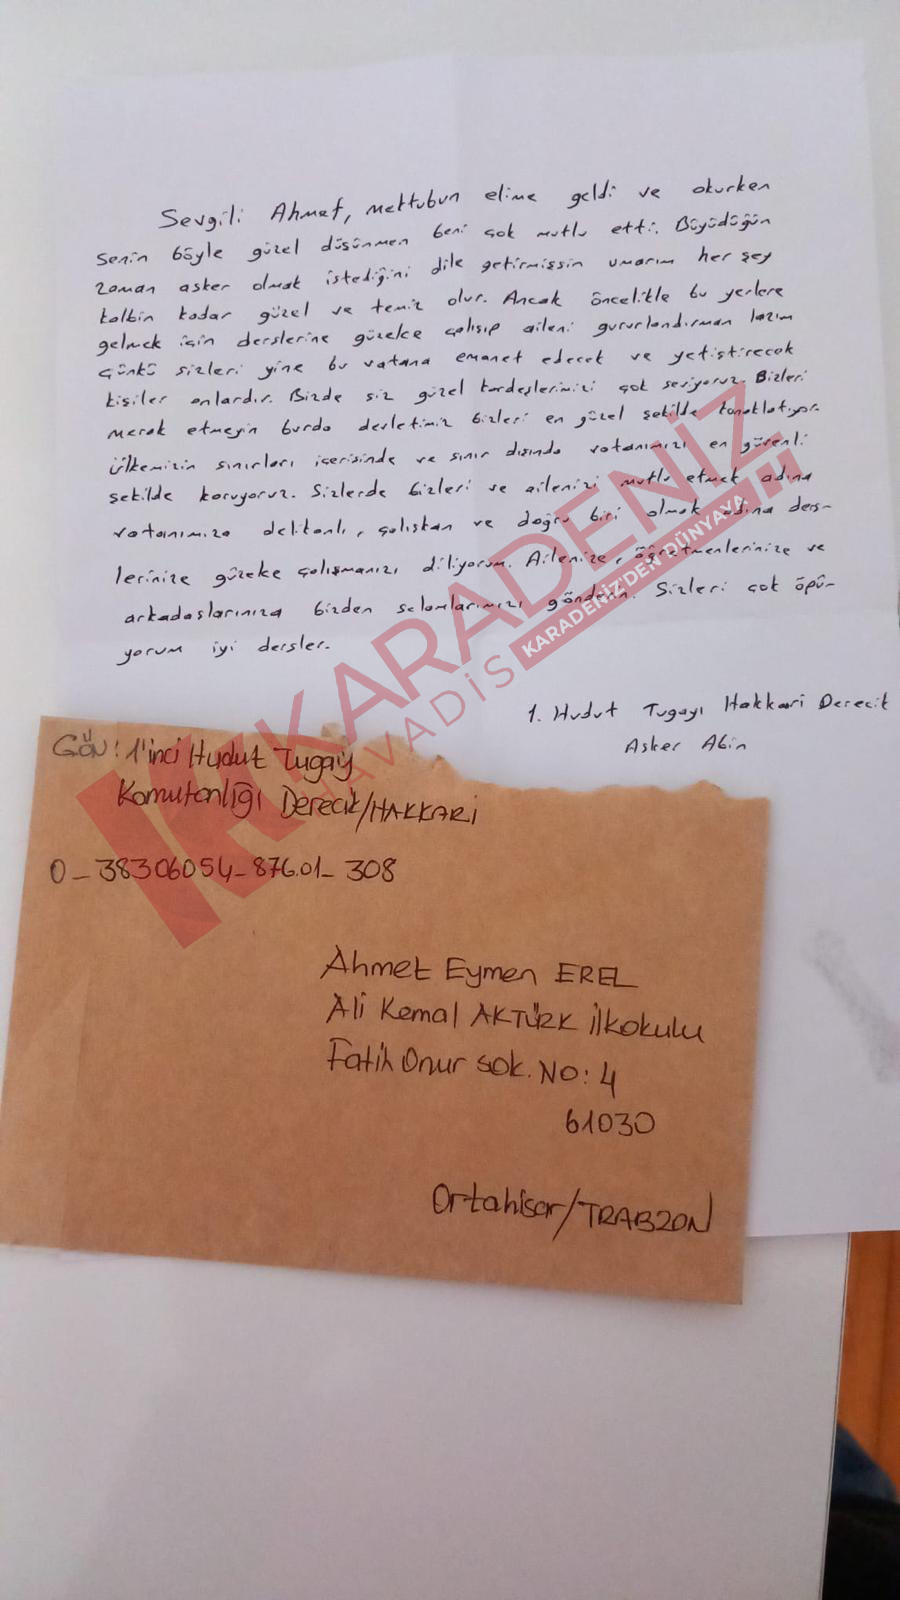 Sevgili Ahmet, mektubun elime geldi ve okurken
senin böyle güzel düşünmen beni çok mutlu etti. Büyüdüğün
zaman asker olmak istediğini dile getirmişsin umarım her şey
kalbin kadar güzel ve temiz olur. Ancak öncelikle bu yerlere
gelmek için derslerine güzelce çalışıp aileni gururlandırman lazım
çünkü sizleri yine bu vatana emanet edecek ve yetiştirecek
kişiler onlardır. Bizde siz güzel kardeşlerimizi çok seviyoruz. Bizleri
merak etmeyin burda devletimiz bizleri en güzel şekilde konaklatıyor.
Ülkemizin sınırları içerisinde ve sınır dışında vatanımızı en güvenli
şekilde koruyoruz. Sizlerde bizleri ve ailenizi mutlu etmek adına
vatanımıza delikanlı, çalışkan ve doğru biri olmak adına ders-
lerinize güzelce çalışmanızı diliyorum. Ailenize, öğretmenlerinize ve
arkadaşlarınıza bizden selamlarımızı gönderin. Sizleri çok öpü-
yorum iyi dersler.
1. Hudut Tugayı Hakkari Derecik
Asker Abin
GÖN: 1'inci Hudut Tugay
Komutanlığı Derecik/HAKKARİ
0-38306054-876.01-308
Ahmet Eymen EREL
Ali Kemal AKTÜRK İlkokulu
Fatih Onur sok. No: 4
61030
Ortahisar/TRABZON
KARADENİZ
HAVADİS
KARADENİZ'DEN DÜNYAYA